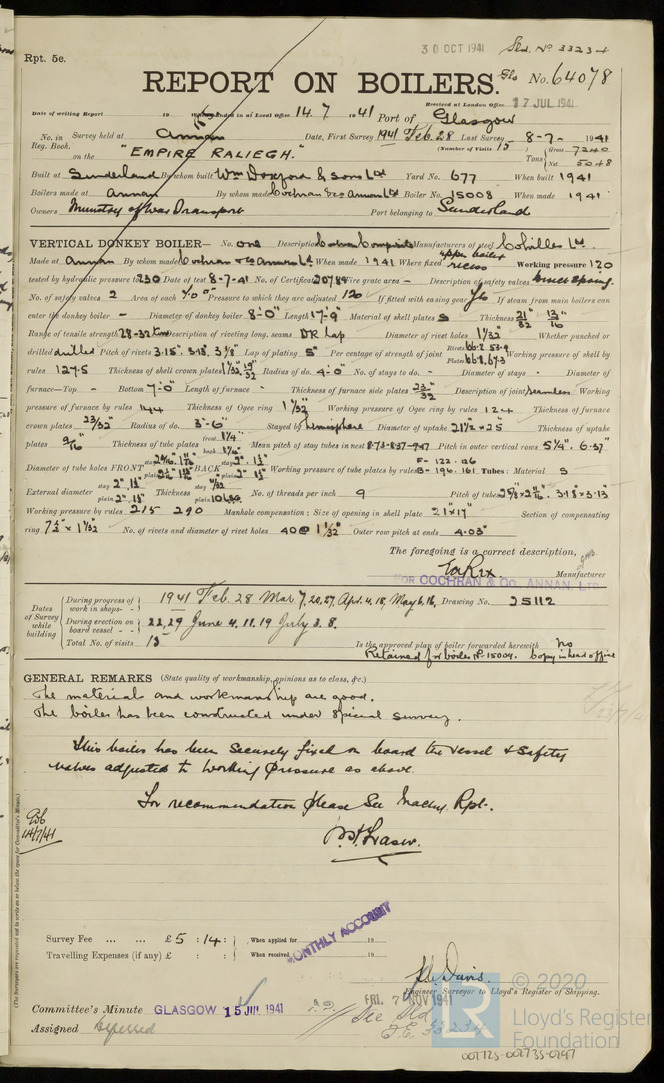 30 OCT 1941 Sld. No 33234
Rpt. 5e.
REPORT ON BOILERS. Gls No. 64078
Received at London Office 17 JUL 1941
Date of writing Report 19 When handed in at Local Office 14.7 1941 Port of Glasgow
No. in Reg. Book. Survey held at Annan Date, First Survey 1941 Feb. 28 Last Survey 8-7- 1941
on the "EMPIRE RALIEGH." (Number of Visits 15) Tons Gross 7240 Net 5048
Built at Sunderland By whom built Wm Doxford & Sons Ltd Yard No. 677 When built 1941
Boilers made at Annan By whom made Cochran & Co Annan Ltd Boiler No. 15008 When made 1941
Owners Ministry of War Transport Port belonging to Sunderland
VERTICAL DONKEY BOILER— No. one Description Cochran Composite Manufacturers of steel Colvilles Ltd.
Made at Annan By whom made Cochran & Co Annan Ltd When made 1941 Where fixed upper boiler recess Working pressure 120
tested by hydraulic pressure to 230 Date of test 8-7-41 No. of Certificate 20789 Fire grate area - Description of safety valves
No. of safety valves 2 Area of each Pressure to which they are adjusted 120 If fitted with easing gear Yes If steam from main boilers can
enter the donkey boiler - Diameter of donkey boiler 8-0" Length 17-9" Material of shell plates S Thickness 21/32" 13/16"
Range of tensile strength 28-32 tons Description of riveting long. seams DR Lap Diameter of rivet holes 1 1/32" Whether punched or
drilled drilled Pitch of rivets 3.15" 3.13" 3 1/8" Lap of plating 5" Per centage of strength of joint Rivets Plates Working pressure of shell by
rules 127.5 Thickness of shell crown plates Radius of do. 4-0" No. of stays to do. - Diameter of stays - Diameter of
furnace—Top - Bottom 7-0" Length of furnace - Thickness of furnace side plates 23/32" Description of joint seamless Working
pressure of furnace by rules 144 Thickness of Ogee ring 1 1/32" Working pressure of Ogee ring by rules 124 Thickness of furnace
crown plates 23/32" Radius of do. 3'-6" Stayed by hemisphere Diameter of uptake 21 1/2" × 25" Thickness of uptake
plates 9/16" Thickness of tube plates front 1 1/4" back 1 1/4" Mean pitch of stay tubes in nest 8.73-8.37-7.47 Pitch in outer vertical rows 5 1/4". 6.37"
Diameter of tube holes FRONT stay plain BACK stay plain Working pressure of tube plates by rules F- 122. 126 B- 196. 161 Tubes: Material S
External diameter stay 2". 1 1/2" plain 2". 1 1/2" Thickness stay plain 10 LSG. No. of threads per inch 9 Pitch of tubes 3.13 × 3.13"
Working pressure by rules 215 290 Manhole compensation: Size of opening in shell plate 21" × 17" Section of compensating
ring 7 1/2" × 1 1/32" No. of rivets and diameter of rivet holes 40 @ 1 1/32" Outer row pitch at ends 4.03"
The foregoing is a correct description,
Manufacturer
FOR COCHRAN & CO. ANNAN, LTD
Dates of Survey while building
During progress of work in shops - - 1941 Feb. 28 Mar 7, 20, 27, Apr. 4, 18, May 6, 16, Drawing No. 25112
During erection on board vessel - - 22, 29 June 4, 11, 19 July 3. 8.
Total No. of visits 15 Is the approved plan of boiler forwarded herewith No
Retained for boiler No. 15004. Copy in head office
GENERAL REMARKS (State quality of workmanship, opinions as to class, &c.)
The materials and workmanship are good.
The boiler has been constructed under special survey.
This boiler has been securely fixed on board the vessel & safety
valves adjusted to working pressure as above.
For recommendation please see Machy. Rpt.
14/7/41
Survey Fee ... ... £5 : 14 : When applied for 19
MONTHLY ACCOUNT
Travelling Expenses (if any) £ : : When received 19
Engineer Surveyor to Lloyd's Register of Shipping.
Committee's Minute GLASGOW 15 JUL 1941 FRI. 7 NOV 1941
Assigned Deferred See Sld
F.E. 33234
© 2020
LR Lloyd's Register Foundation
002725-002735-0247